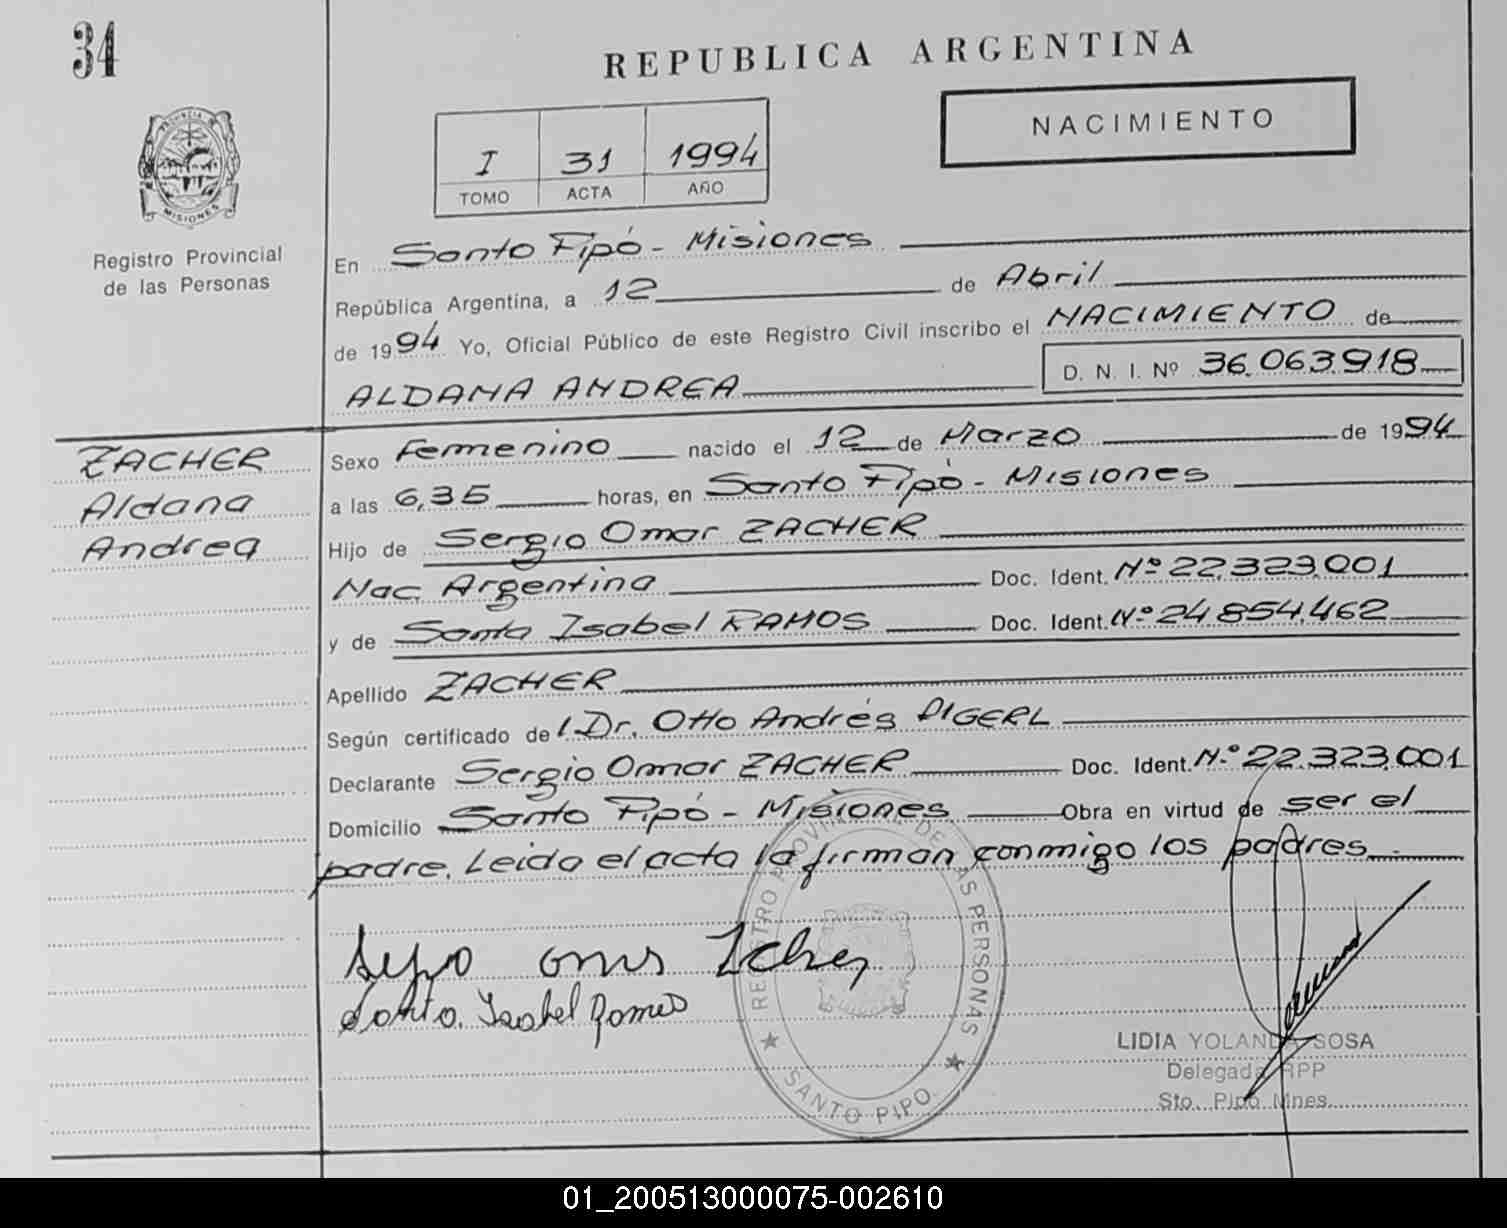 34
REPUBLICA ARGENTINA
NACIMIENTO
I 31 1994
TOMO ACTA AÑO
PROVINCIA DE
MISIONES
Registro Provincial
de las Personas
En Santo Pipó - Misiones
República Argentina, a 12 de Abril
de 1994 Yo, Oficial Público de este Registro Civil inscribo el NACIMIENTO de
ALDANA ANDREA D. N. I. Nº 36.063.918
ZACHER
Aldana
Andrea
Sexo Femenino nacido el 12 de Marzo de 1994
a las 6,35 horas, en Santo Pipó - Misiones
Hijo de Sergio Omar ZACHER
Nac. Argentina Doc. Ident. Nº 22.323.001
y de Santa Isabel RAMOS Doc. Ident. Nº 24.854.462
Apellido ZACHER
Según certificado del Dr. Otto Andrés PIGERL
Declarante Sergio Omar ZACHER Doc. Ident. Nº 22.323.001
Domicilio Santo Pipó - Misiones Obra en virtud de ser el
padre. Leida el acta la firman conmigo los padres.
Santa Isabel Ramos
REGISTRO PROVINCIAL DE LAS PERSONAS
★ SANTO PIPO ★
LIDIA YOLANDA SOSA
Delegada RPP
Sto. Pipó Mnes.
01_200513000075-002610